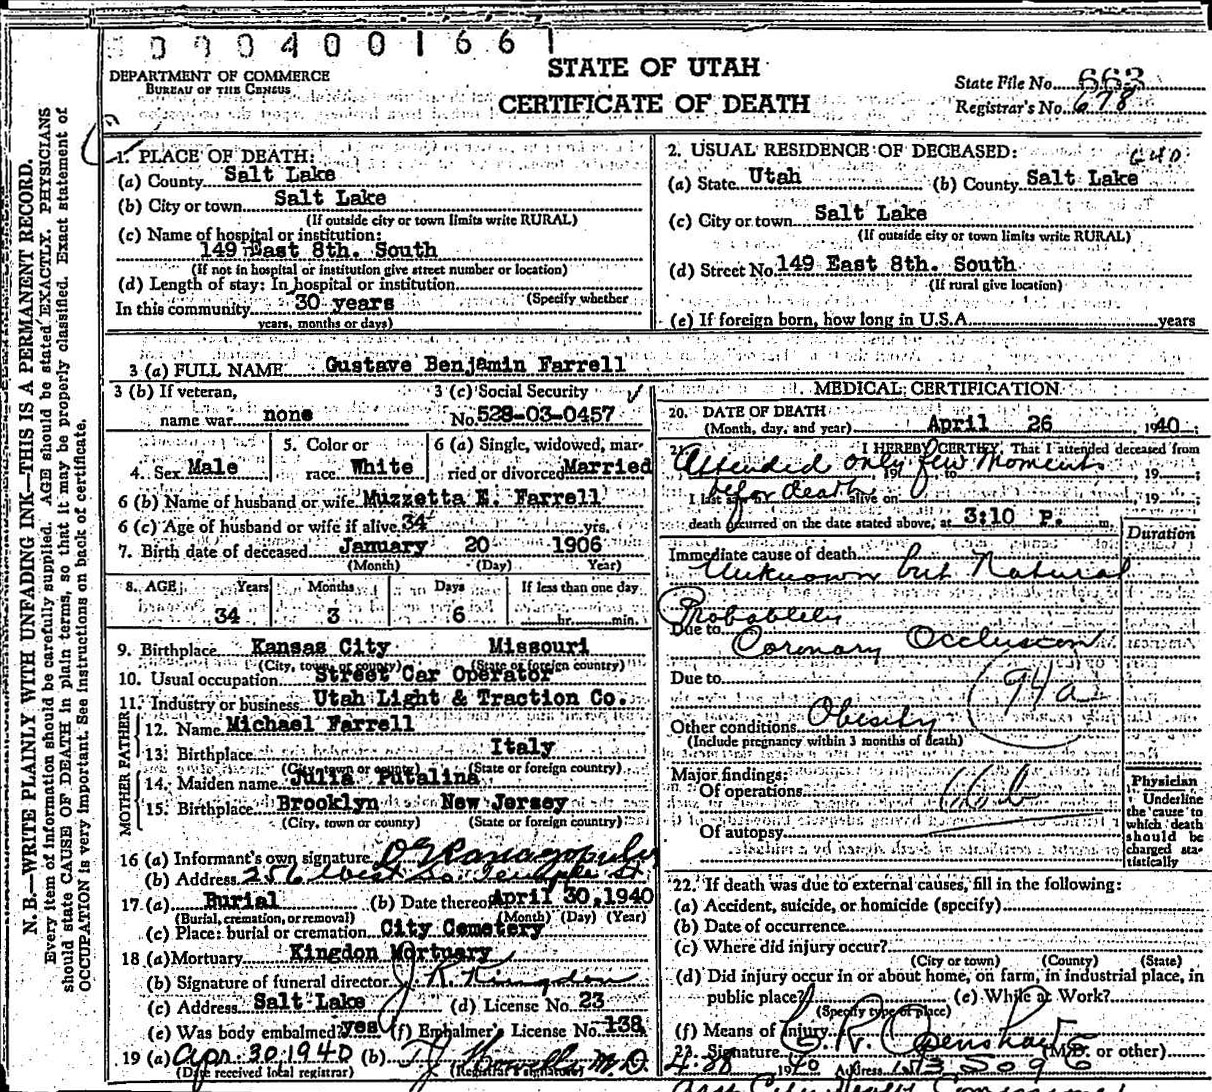 0 0 0 4 0 0 1 6 6 1
DEPARTMENT OF COMMERCE
BUREAU OF THE CENSUS
STATE OF UTAH
CERTIFICATE OF DEATH
State File No. 663
Registrar's No. 678
N. B.—WRITE PLAINLY WITH UNFADING INK—THIS IS A PERMANENT RECORD.
Every item of information should be carefully supplied. AGE should be stated EXACTLY. PHYSICIANS
should state CAUSE OF DEATH in plain terms, so that it may be properly classified. Exact statement of
OCCUPATION is very important. See instructions on back of certificate.
1. PLACE OF DEATH:
(a) County Salt Lake
(b) City or town Salt Lake
(If outside city or town limits write RURAL)
(c) Name of hospital or institution:
149 East 8th. South
(If not in hospital or institution give street number or location)
(d) Length of stay: In hospital or institution
(Specify whether
In this community 30 years
years, months or days)
2. USUAL RESIDENCE OF DECEASED:
(a) State Utah (b) County Salt Lake
(c) City or town Salt Lake
(If outside city or town limits write RURAL)
(d) Street No. 149 East 8th. South
(If rural give location)
(e) If foreign born, how long in U.S.A. years
3 (a) FULL NAME Gustave Benjamin Farrell
3 (b) If veteran,
name war none
3 (c) Social Security
No. 528-03-0457
4. Sex Male
5. Color or
race White
6 (a) Single, widowed, mar-
ried or divorced Married
6 (b) Name of husband or wife Muzzetta E. Farrell
6 (c) Age of husband or wife if alive 34 yrs.
7. Birth date of deceased January 20 1906
(Month) (Day) Year)
8. AGE Years Months Days If less than one day
34 3 6 hr. min.
9. Birthplace Kansas City Missouri
(City, town or county) (State or foreign country)
10. Usual occupation Street Car Operator
11. Industry or business Utah Light & Traction Co.
FATHER
12. Name Michael Farrell
13. Birthplace Italy
(City, town or county) (State or foreign country)
MOTHER
14. Maiden name Julia Putalina
15. Birthplace Brooklyn New Jersey
(City, town or county) (State or foreign country)
16 (a) Informant's own signature
(b) Address 256 West So. Temple St
17 (a) Burial (b) Date thereof April 30, 1940
(Burial, cremation, or removal) (Month) (Day) (Year)
(c) Place: burial or cremation City Cemetery
18 (a) Mortuary Kingdon Mortuary
(b) Signature of funeral director J. R. Kingdon
(c) Address Salt Lake (d) License No. 23
(e) Was body embalmed? yes (f) Embalmer's License No. 138
19 (a) Apr. 30. 1940 (b) M.D.
(Date received local registrar) (Registrar's signature)
MEDICAL CERTIFICATION
20. DATE OF DEATH
(Month, day, and year) April 26 1940
21. I HEREBY CERTIFY, That I attended deceased from
Attended only few Moments
19 to 19
before death
I last saw alive on 19
death occurred on the date stated above, at 3:10 P. m.
Duration
Immediate cause of death
Unknown but Natural
Probablely
Due to Coronary Occlusion
Due to 94a
Other conditions Obesity
(Include pregnancy within 3 months of death)
Major findings:
Of operations 66b
Of autopsy
Physician
Underline
the cause to
which death
should be
charged sta-
tistically
22. If death was due to external causes, fill in the following:
(a) Accident, suicide, or homicide (specify)
(b) Date of occurrence
(c) Where did injury occur?
(City or town) (County) (State)
(d) Did injury occur in or about home, on farm, in industrial place, in
public place? (e) While at Work?
(Specify type of place)
(f) Means of Injury
23. Signature (M.D. or other)
Address